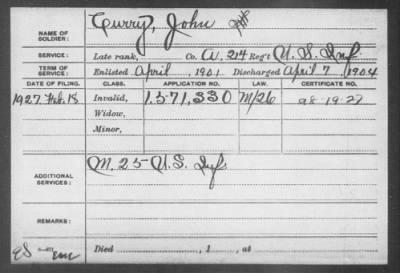 NAME OF SOLDIER: Curry, John
SERVICE: Late rank, Co. A, 24 Reg't U.S. Inf
TERM OF SERVICE: Enlisted April, 1901 Discharged April 7, 1904
DATE OF FILING. CLASS. APPLICATION NO. LAW. CERTIFICATE NO.
1927 Feb. 18 Invalid, 1,571,330
Widow,
Minor,
ADDITIONAL SERVICES: M. 25 U.S. Inf
REMARKS:
Died , 1 , at